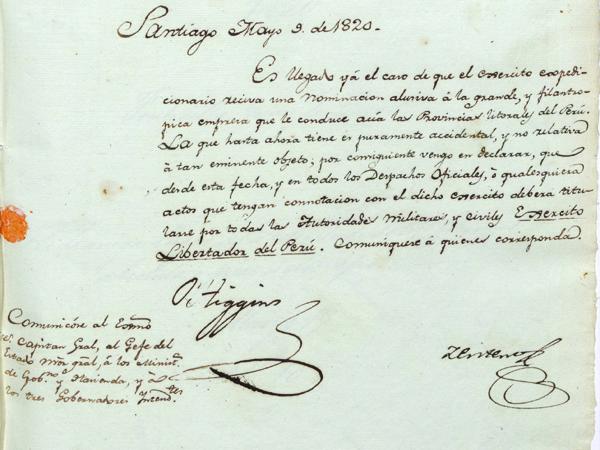 Santiago Mayo 9. de 1820.
Es llegado yá el caso de que el Exercito expedi-
cionario reciva una Nominacion alusiva á la grande, y filantro-
pica empresa que le conduce acia las Provincias litorales del Perú.
La que hasta ahora tiene es puramente accidental, y no relativa
á tan eminente objeto; por consiguiente vengo en declarar, que
desde esta fecha, y en todos los Despachos Oficiales, ó qualesquiera
actos que tengan connotacion con el dicho Exercito deberá titu-
larse por todas las Autoridades Militares, y Civiles Exercito
Libertador del Perú. Comuniquese á quienes corresponda.
O'Higgins
Zenteno
Comunicóse al Exmo
Sor. Capitan Gral, al Gefe del
Estado Mor. gral, á los Minist.s
de Gob.no y Hacienda, y á
los tres Gobernadores Intend.tes